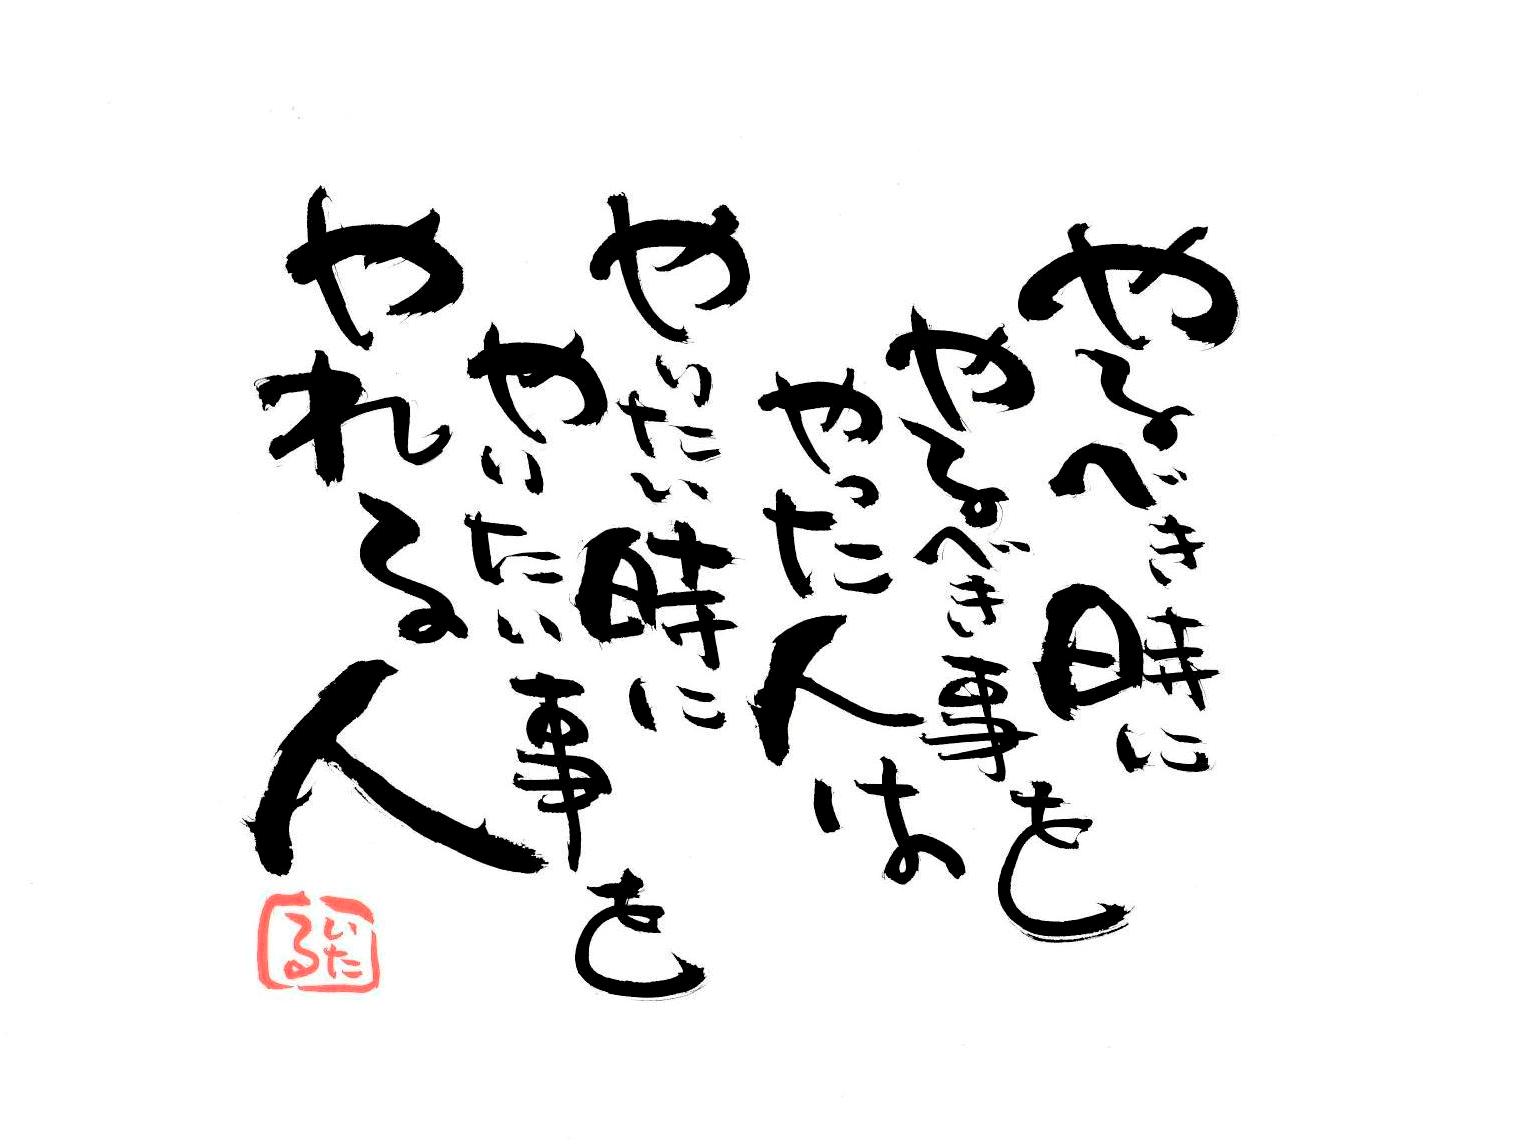 やるべき時に
やるべき事を
やった人は
やいたい時に
やいたい事を
やれる人
いた
る